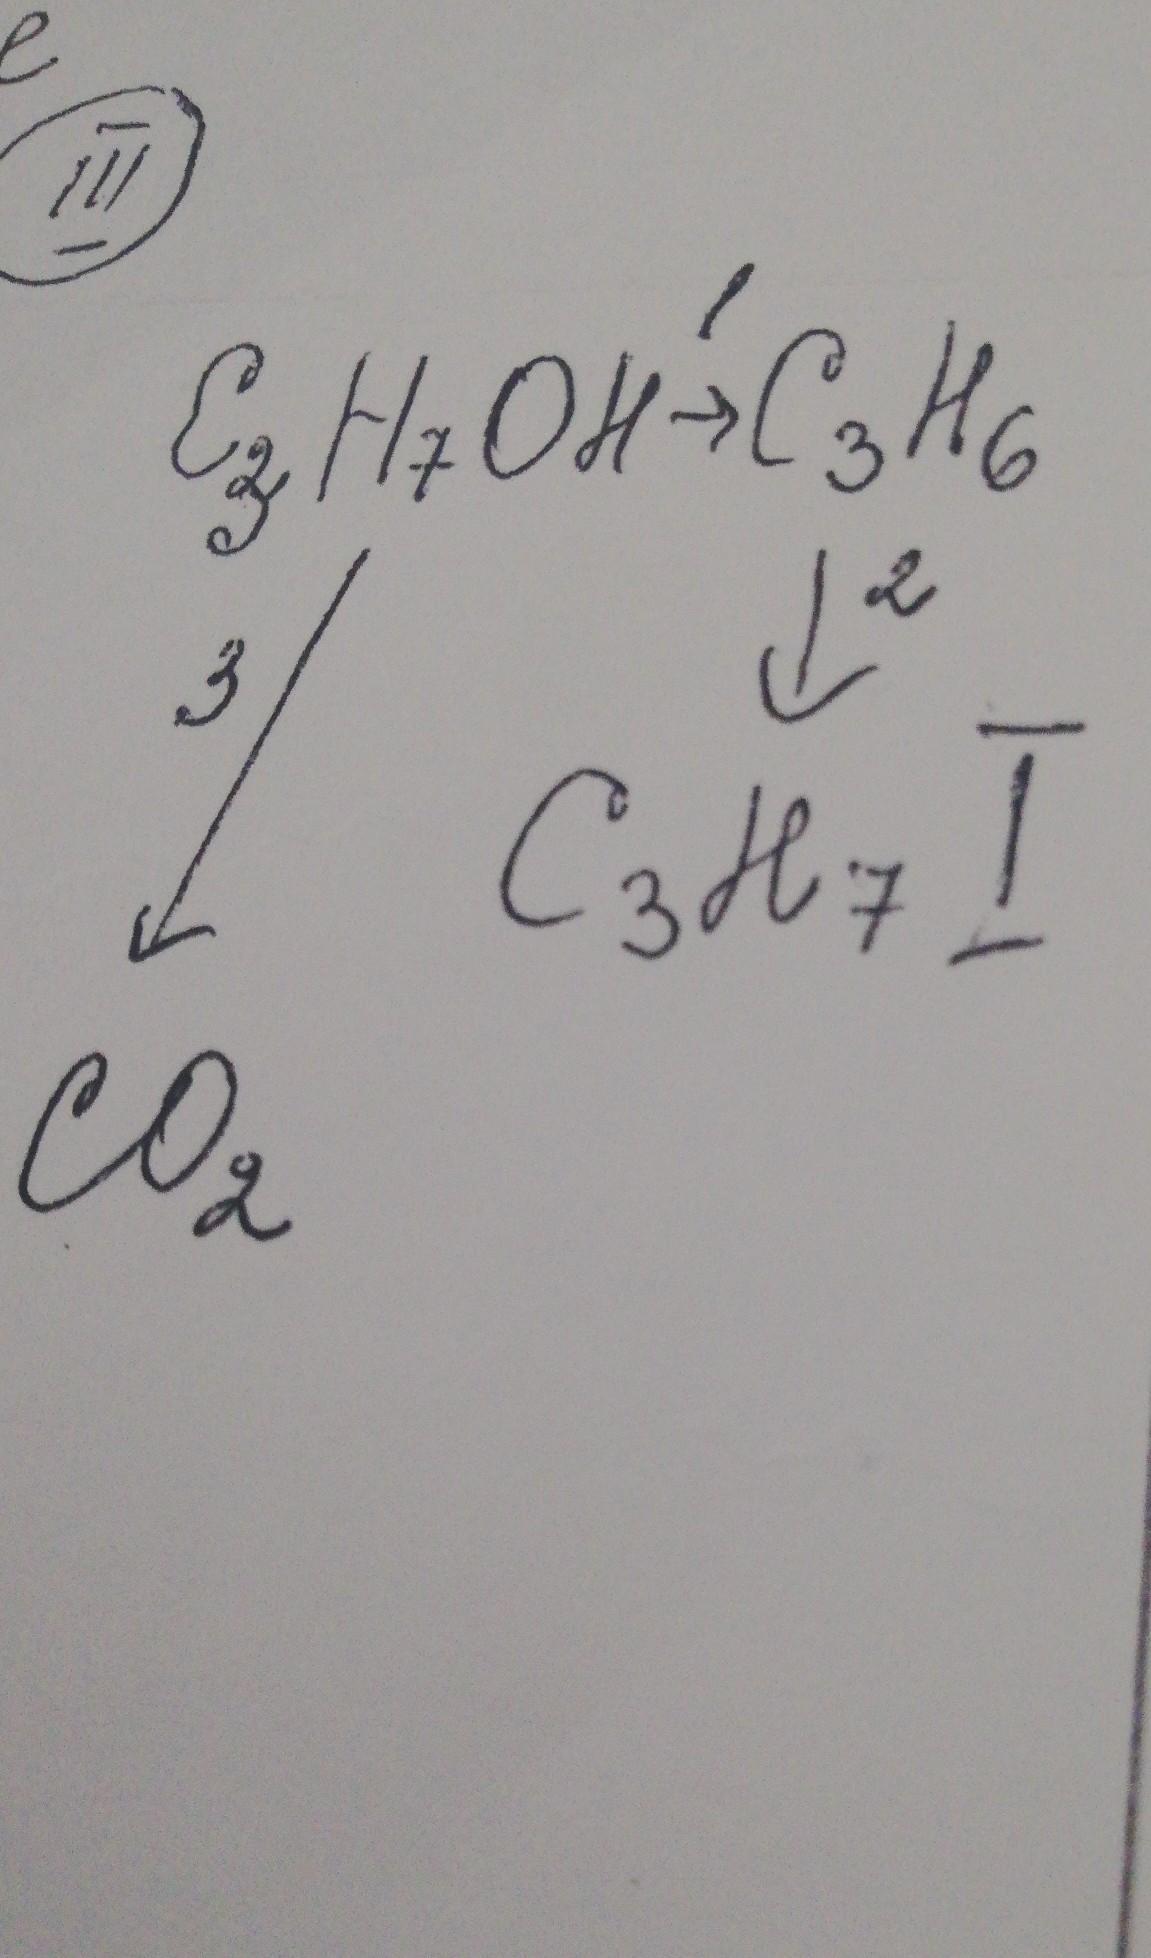 е
III
1
C₃H₇OH → C₃H₆
3 ↙ ↓ 2
C₃H₇I
CO₂